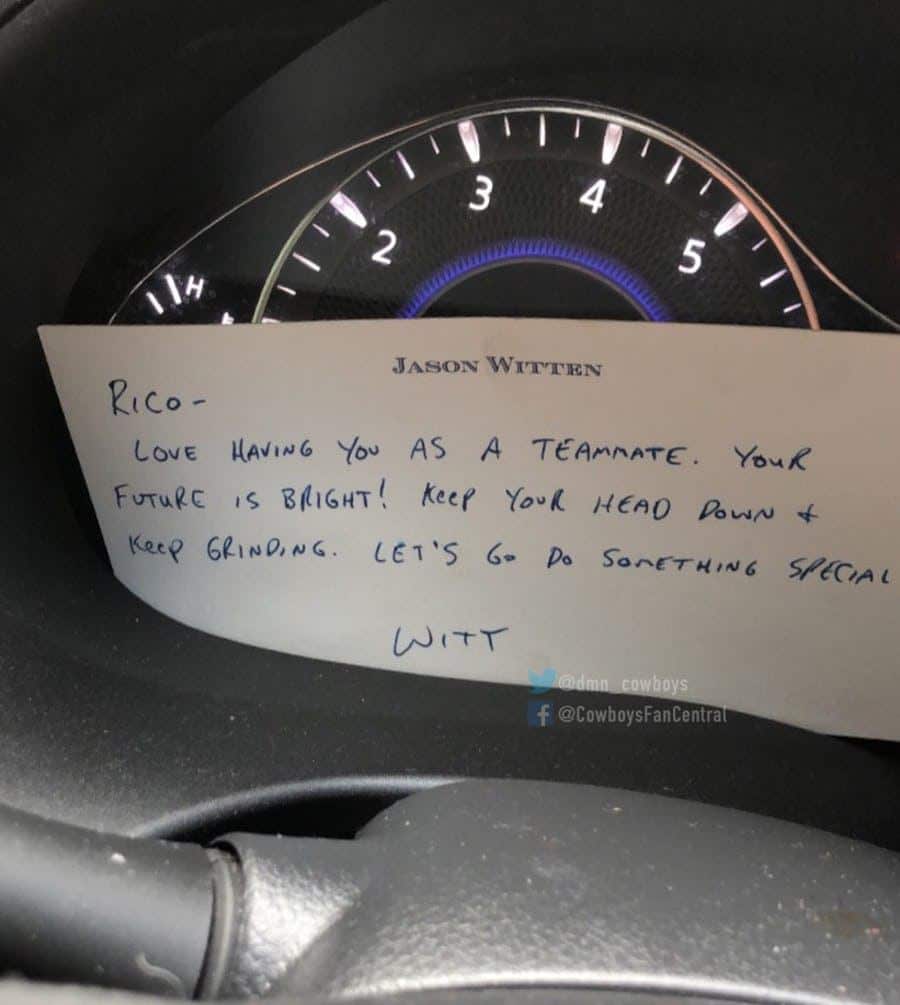 3
4
2
5
H
JASON WITTEN
RICO -
LOVE HAVING YOU AS A TEAMMATE. YOUR
FUTURE IS BRIGHT! KEEP YOUR HEAD DOWN &
KEEP GRINDING. LET'S GO DO SOMETHING SPECIAL
WITT
@dmn_cowboys
@CowboysFanCentral